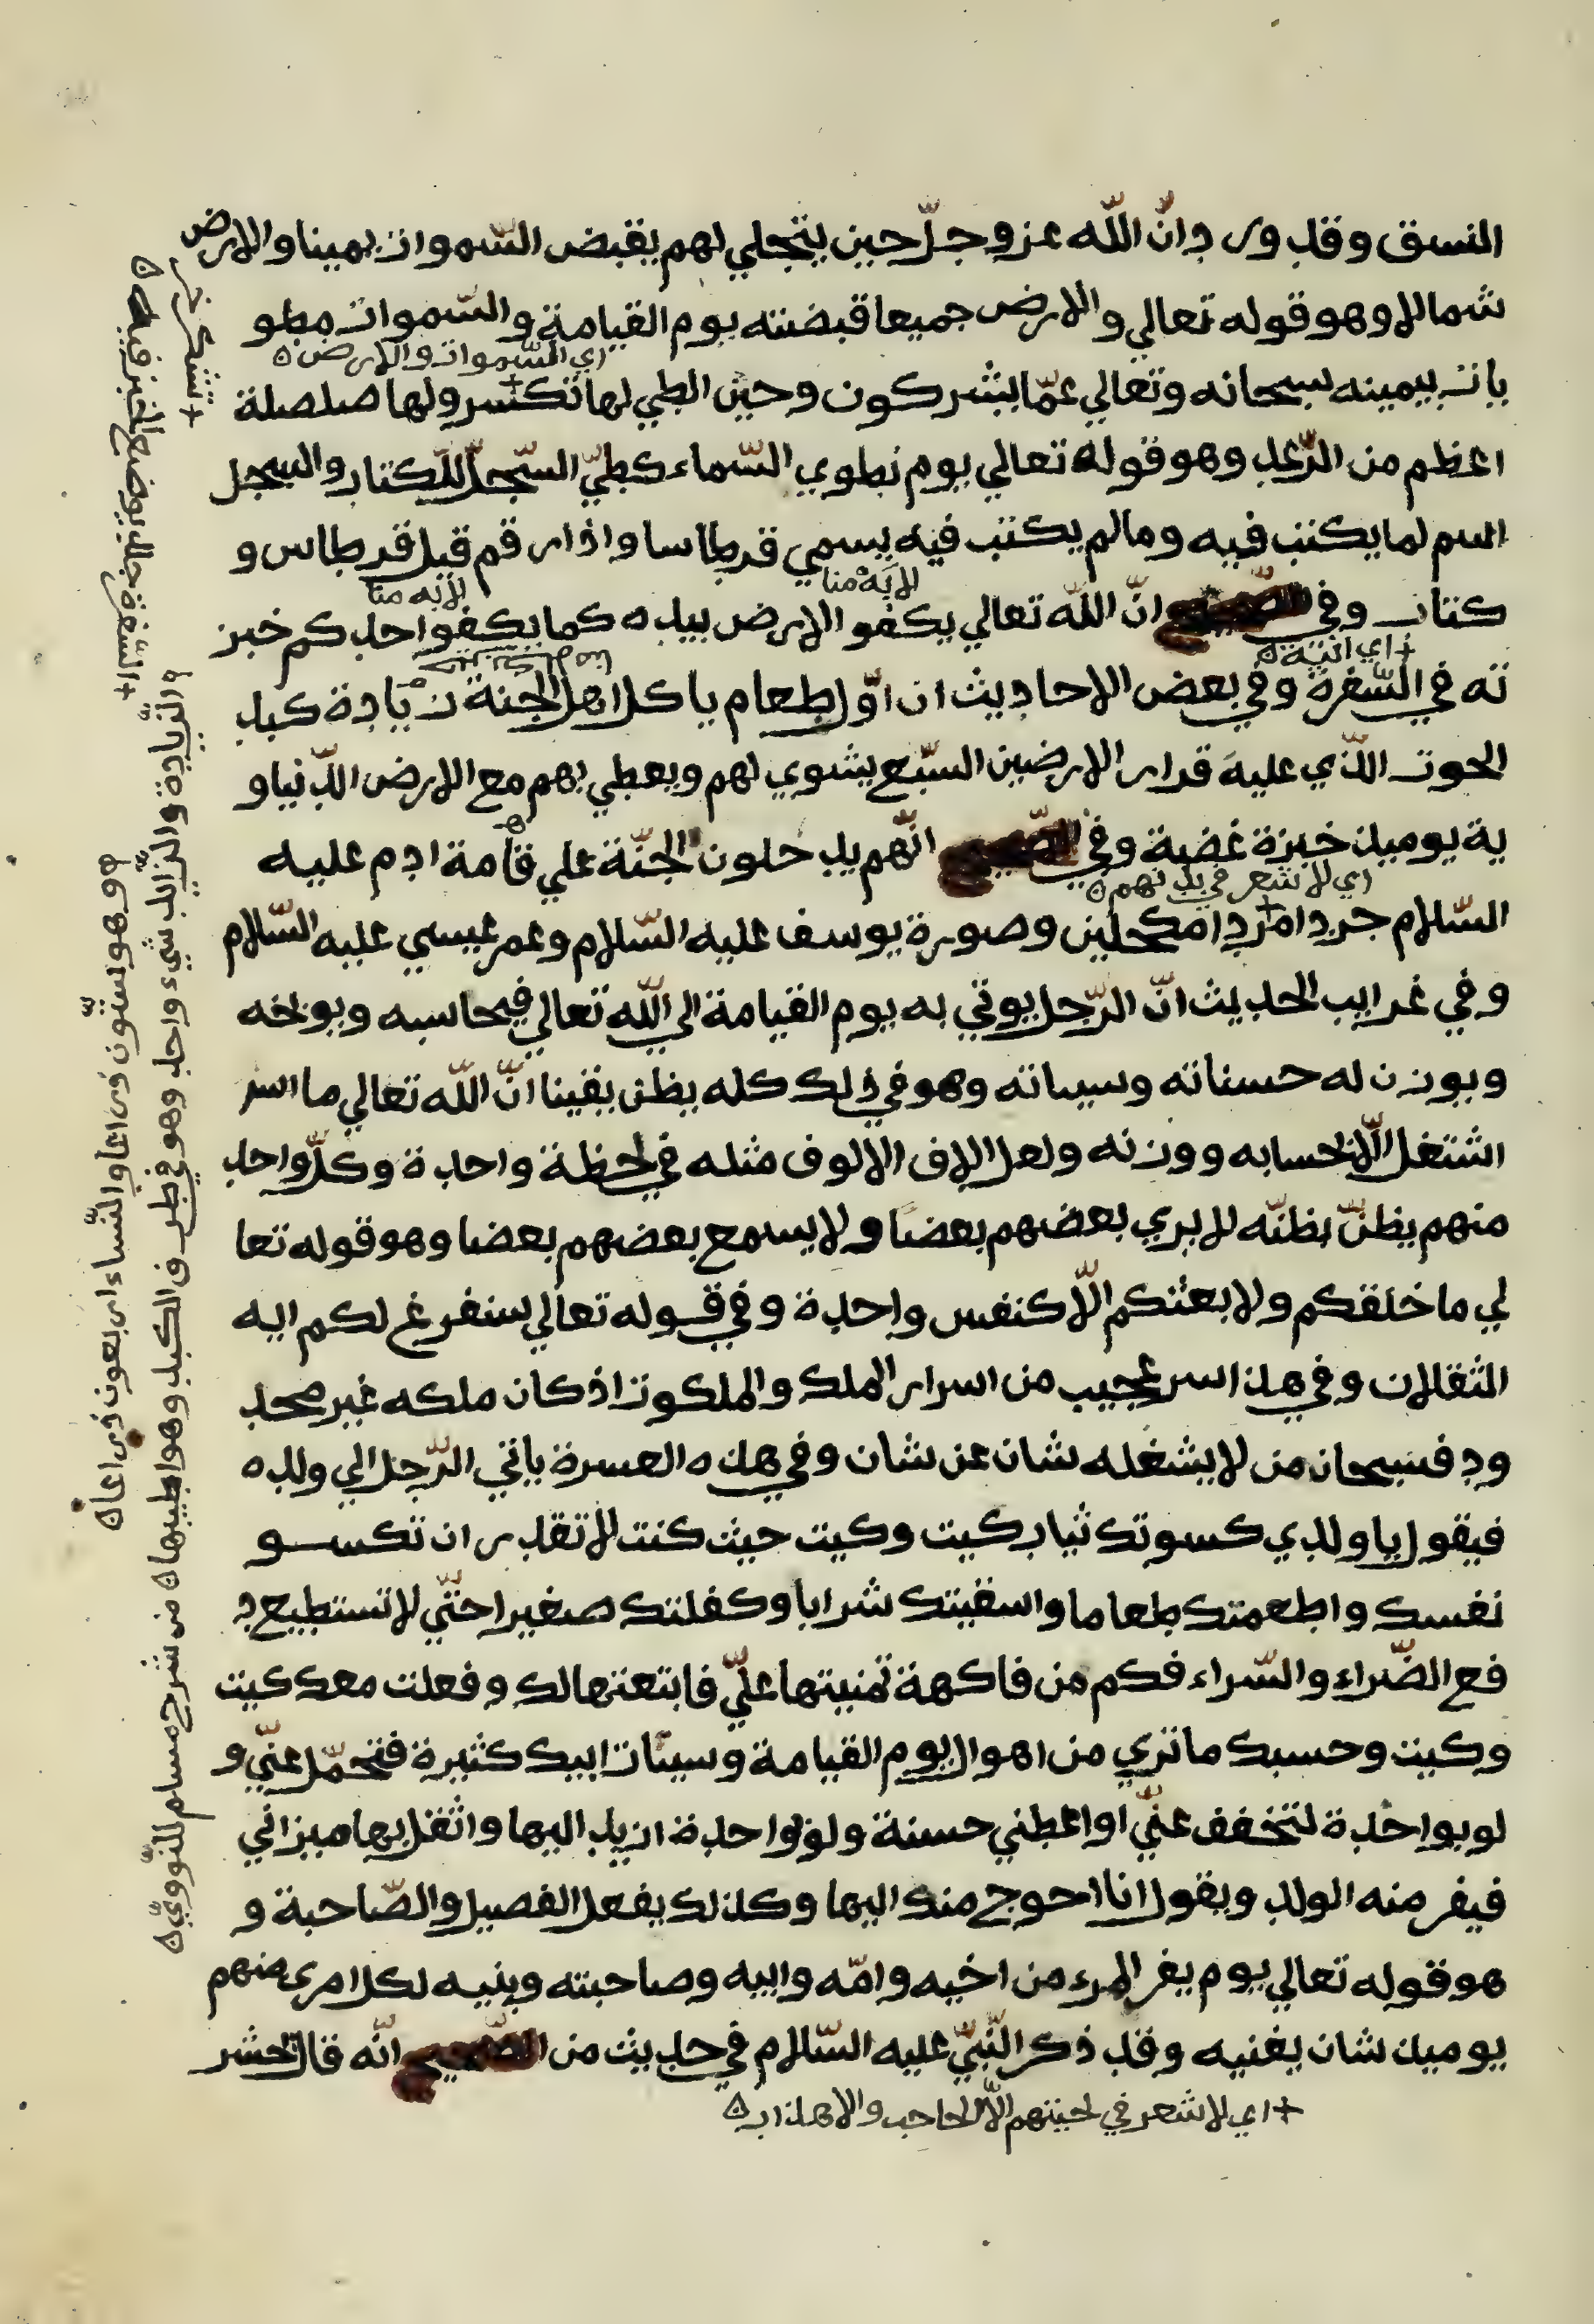 النسق وقد ورد انّ اللّه عز وجلّ حين يتجلي لهم يقبض السّموات بمينا والارض
شمالا وهو قوله تعالي والارض جميعا قبضته يوم القيامة والسّموات مطو
اي السّموات والارض
يات بيمينه سبحانه وتعالي عمّا يشركون وحين الطي لها تكسر ولها صلصلة
اعظم من الرّعد وهو قوله تعالي يوم نطوي السّماء كطيّ السّجلّ للكتاب والسجل
اسم لما يكتب فيه ومالم يكتب فيه يسمي قرطاسا واذا رقم قيل قرطاس و
كتاب وفي الصّحيح انّ اللّه تعالي يكفو الارض بيده كما يكفوا احدكم خبز
اي انية
ته في السّفرة وفي بعض الاحاديث ان اوّل طعام ياكل اهل الجنة زيادة كبد
الحوت الّذي عليه قرار الارضين السّبع يشوي لهم ويعطي بهم مع الارض الدّنياو
ية يوميذ خبزة غضية وفي الصّحيح انّهم يدخلون الجنّة علي قامة ادم عليه
اي لا شعر في بدنهم
السّلام جردا مردا مكحلين وصورة يوسف عليه السّلام وعمر عيسي عليه السّلام
وفي غرايب الحديث انّ الرّجل يوتي به يوم القيامة الي اللّه تعالي فيحاسبه ويوبخه
ويوزن له حسناته وسيياته وهو في ذلك كله يظن يقينا انّ اللّه تعالي ما اسر
اشتغل الّا بحسابه ووزنه ولعل الاف الالوف مثله في لحظة واحدة وكلّ واحد
منهم يظنّ بظنّه لا يري بعضهم بعضا ولا يسمع بعضهم بعضا وهو قوله تعا
لي ما خلقكم ولا بعثكم الّا كنفس واحدة وفي قوله تعالي سنفرغ لكم ايه
الثقلان وفي هذا سر عجيب من اسرار الملك والملكوت اذ كان ملكه غير محد
ود فسبحان من لا يشغله شان عن شان وفي هذه العسرة ياتي الرّجل الي ولده
فيقول يا ولدي كسوتك ثياب كيت وكيت حيث كنت لا تقدر ان تكسو
نفسك واطعمتك طعاما واسقيتك شرابا وكفلتك صغيرا حتّي لا تستطيع د
فع الضّراء والسّراء فكم من فاكهة تمنيتها عليّ فابتعتها لك وفعلت معك كيت
وكيت وحسبك ما تري من اهوال يوم القيامة وسيئات ابيك كثيرة فتحمّل عنّي و
لو بواحدة لتخفف عنّي او اعطني حسنة ولو بواحدة ازيد اليها واثقل بها ميزاني
فيفر منه الولد ويقول انا احوج منك اليها وكذلك يفعل الفصيل والصّاحبة و
هو قوله تعالي يوم يفر المرء من اخيه وامّه وابيه وصاحبته وبنيه لكل امرئ منهم
يوميذ شان يغنيه وقد ذكر النّبيّ عليه السّلام في حديث من الصّحيح انّه قال تحشر
اي لا شعر في لحيتهم الّا الحاجب والاهداب
السّفرة جلد يوضع الخبز فيه
والزّيادة والزّايد شيء واحد وهو في طرف الكبد وهو اطيبها من شرح مسلم للنّوويّ
وهو ستّون ذراعا والنّساء اربعون ذراعا